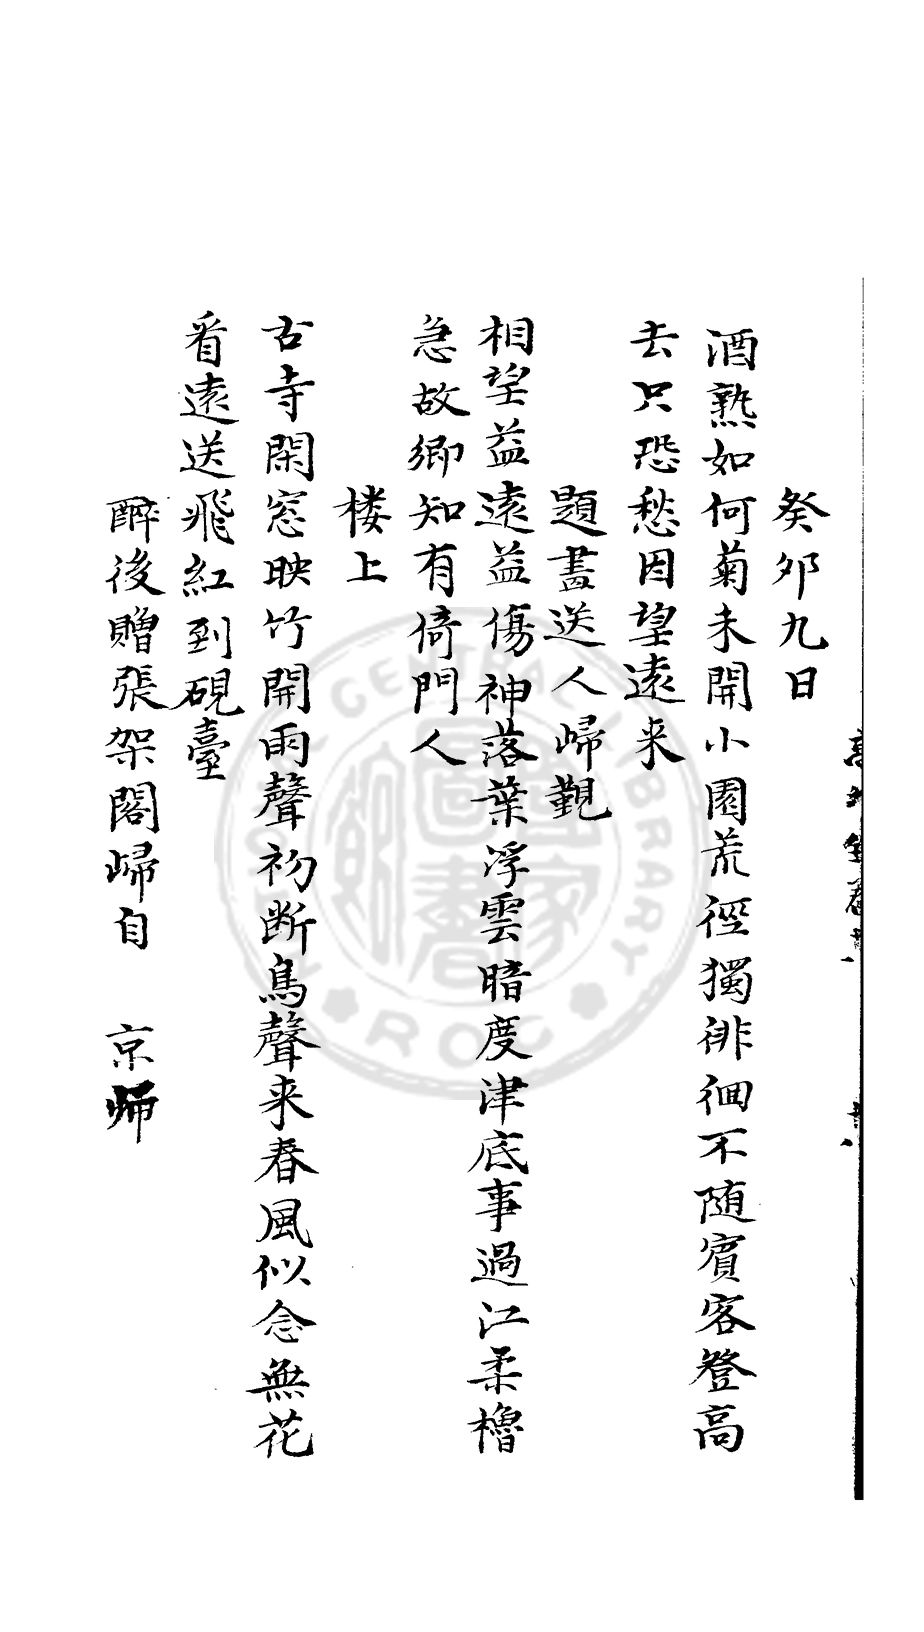 癸夘九日
酒熟如何菊未開小園荒徑獨徘徊不随賓客登高
去只恐愁因望遠来
題畫送人歸覲
相望益遠益傷神落葉浮雲暗度津底事過江柔櫓
急故鄉知有倚門人
楼上
古寺閑窓映竹開雨聲初断鳥聲来春風似念無花
看遠送飛紅到硯臺
醉後贈張架閣歸自 京师
CENTRAL LIBRARY
ROC
國家圖書館